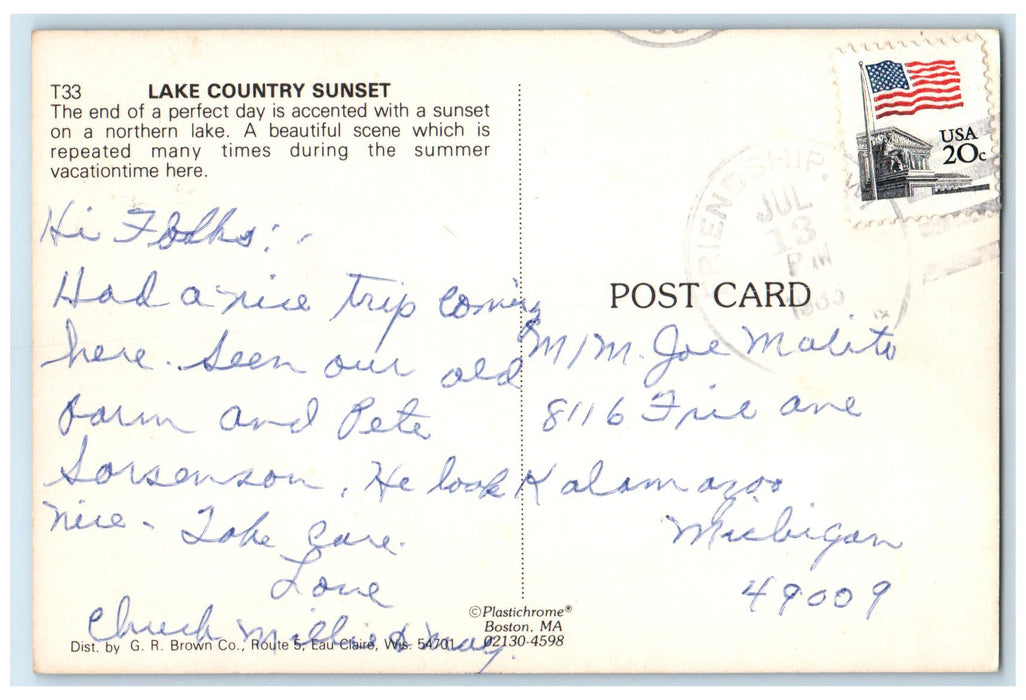 T33 LAKE COUNTRY SUNSET
The end of a perfect day is accented with a sunset
on a northern lake. A beautiful scene which is
repeated many times during the summer
vacationtime here.
Hi Folks:
Had a nice trip coming
here. Seen our old
farm and Pete
Sorsenson. He look
nice. Take care.
Love
Chuck Millie & May.
Dist. by G. R. Brown Co., Route 5, Eau Claire, Wis. 54701
©Plastichrome®
Boston, MA
02130-4598
USA
20c
FRIENDSHIP, WI
JUL
13
PM
POST CARD
M/M. Joe Malito
8116 Ave
Kalamazoo
Michigan
49009